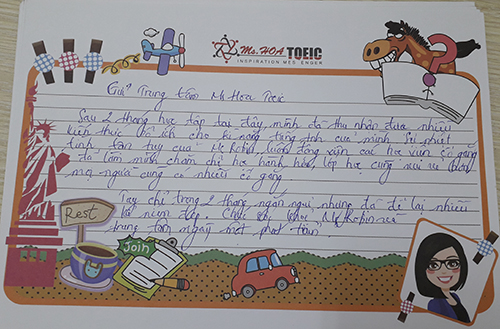 Ms. HOA TOEIC
INSPIRATION MESSENGER
Gửi Trung tâm Ms Hoa Toeic
Sau 2 tháng học tập tại đây, mình đã thu nhận được nhiều
kiến thức bổ ích cho kĩ năng tiếng Anh của mình. Sự nhiệt
tình, tận tuỵ của Mr Robin, luôn động viên các học viên cố gắng
đã làm mình chăm chỉ học hành hơn, lớp học cũng vui vẻ
mọi người cũng có nhiều cố gắng.
Tuy chỉ trong 2 tháng ngắn ngủi nhưng đã để lại nhiều
kỉ niệm đẹp. Chúc thầy giáo Mr Robin và
trung tâm ngày một phát triển.
Rest
Join